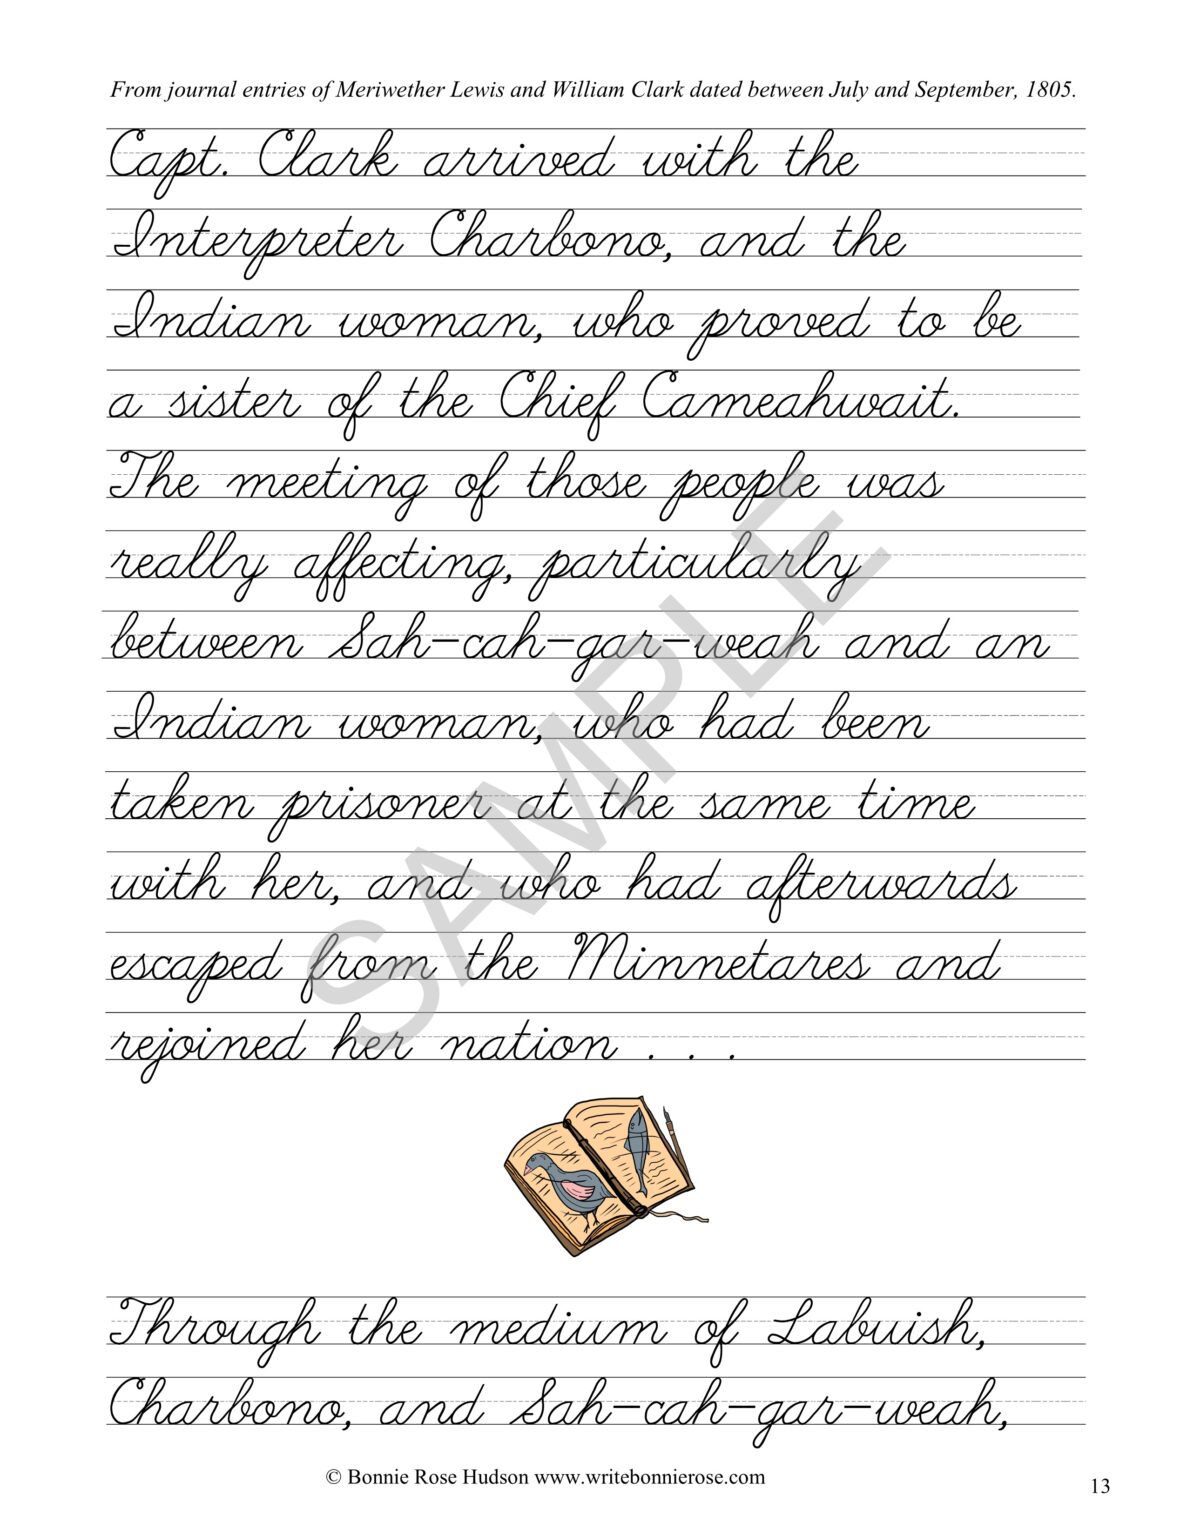 From journal entries of Meriwether Lewis and William Clark dated between July and September, 1805.
Capt. Clark arrived with the
Interpreter Charbono, and the
Indian woman, who proved to be
a sister of the Chief Cameahwait.
The meeting of those people was
really affecting, particularly
between Sah-cah-gar-weah and an
Indian woman, who had been
taken prisoner at the same time
with her, and who had afterwards
escaped from the Minnetares and
rejoined her nation . . .
SAMPLE
Through the medium of Labuish,
Charbono, and Sah-cah-gar-weah,
© Bonnie Rose Hudson www.writebonnierose.com
13